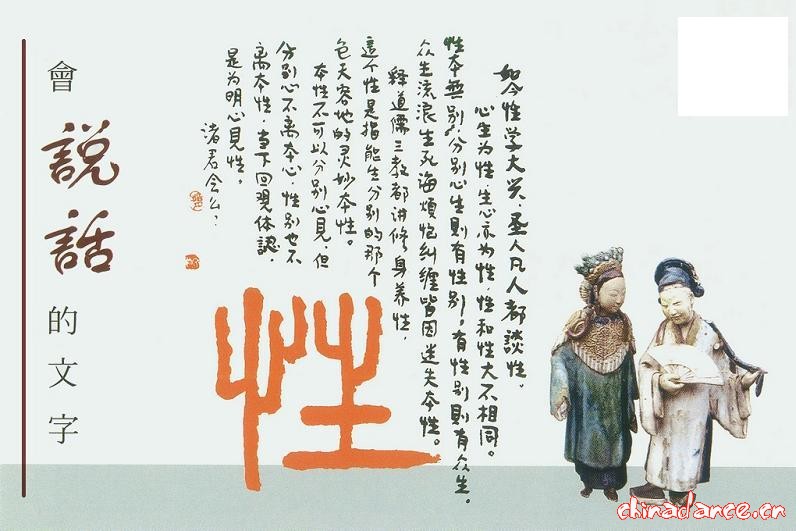 會說話的文字
如今性学大兴，圣人凡人都談性。
心生为性，生心亦为性，性和性大不相同。
性本無别，分别心生則有性别，有性别則有众生。
众生流浪生死海，煩恼糾纏皆因迷失本性。
释道儒三教都讲修身养性，
這个性是指能生分别的那个
包天容地的灵妙本性。
本性不可以分别心見，但
分别心不离本心，性别也不
离本性，当下回观体認，
是为明心見性。
诸君会么？
性
chinadance.cn